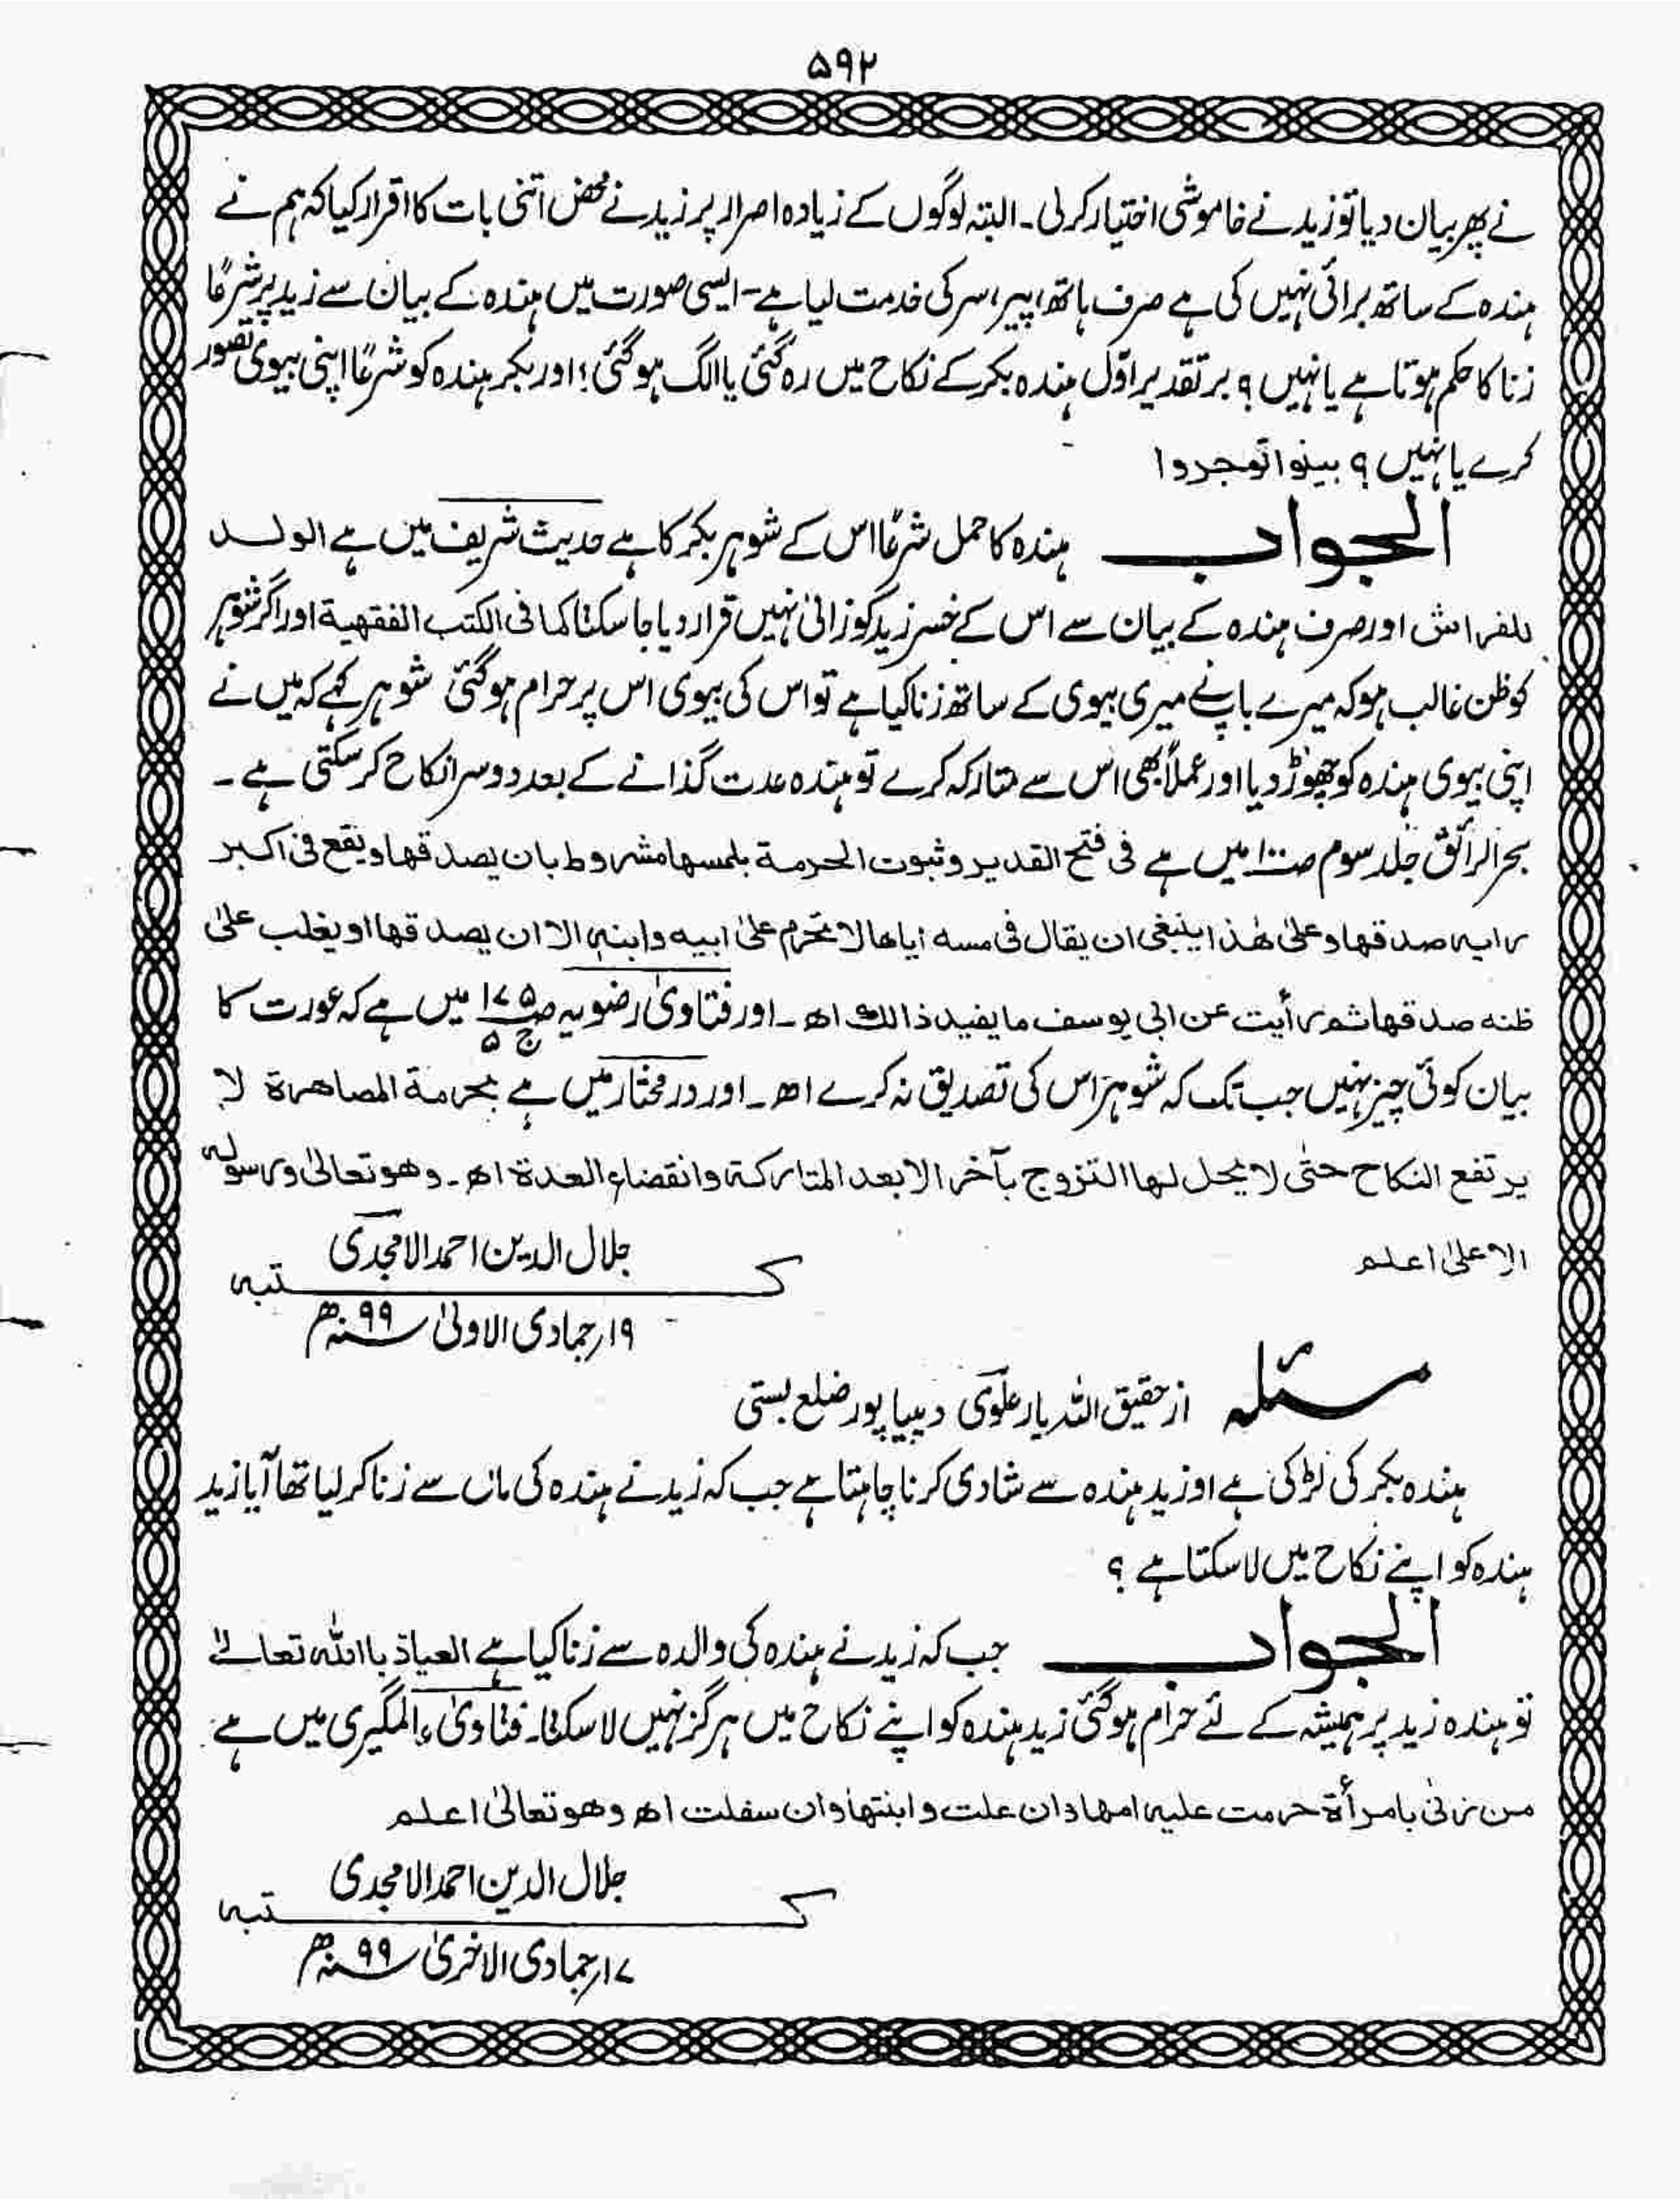 ۵۹۲
نے پھر بیان دیا تو زید نے خاموشی اختیار کرلی۔ البتہ لوگوں کے زیادہ اصرار پر زید نے محض اتنی بات کا اقرار کیا کہ ہم نے
ہندہ کے ساتھ برائی نہیں کی ہے صرف ہاتھ، پیر، سر کی خدمت لیا ہے۔ ایسی صورت میں ہندہ کے بیان سے زید پر شرعًا
زنا کا حکم ہوتا ہے یا نہیں؟ بر تقدیر اوّل ہندہ بکر کے نکاح میں رہ گئی یا الگ ہوگئی؟ اور بکر ہندہ کو شرعًا اپنی بیوی تصور
کرے یا نہیں؟ بینوا توجروا
الجواب ہندہ کا حمل شرعًا اس کے شوہر بکر کا ہے حدیث شریف میں ہے الولد
للفراش اور صرف ہندہ کے بیان سے اس کے خسر زید کو زانی نہیں قرار دیا جاسکتا کما فی الکتب الفقھیۃ اور اگر شوہر
کو ظن غالب ہو کہ میرے باپ نے میری بیوی کے ساتھ زنا کیا ہے تو اس کی بیوی اس پر حرام ہوگئی شوہر کہے کہ میں نے
اپنی بیوی ہندہ کو چھوڑ دیا اور عملاً بھی اس سے متارکہ کرے تو ہندہ عدت گذانے کے بعد دوسرا نکاح کرسکتی ہے۔
بحرالرائق جلد سوم صـ۱۰۰ میں ہے فی فتح القدیر وثبوت الحرمۃ بلمسھا مشروط بان یصدقھا ویقع فی اکبر
رایہ صدقھا وعلیٰ ھٰذا ینبغی ان یقال فی مسہ ایاھا لا تحرم علیٰ ابیہ وابنہ الا ان یصدقھا او یغلب علیٰ
ظنہ صدقھا ثم رأیت عن ابی یوسف ما یفید ذالک اھ۔ اور فتاویٰ رضویہ ج۵ صـ۱۷۵ میں ہے کہ عورت کا
بیان کوئی چیز نہیں جب تک کہ شوہر اس کی تصدیق نہ کرے اھ۔ اور درمختار میں ہے بحرمۃ المصاھرۃ لا
یرتفع النکاح حتٰی لا یحل لھا التزوج بآخر الا بعد المتارکۃ وانقضاء العدۃ اھ۔ وھو تعالیٰ ورسولہ
الاعلیٰ اعلم
جلال الدین احمد الامجدی
کتبہ
۱۹؍ جمادی الاولیٰ ۹۹ سنہ ھ
مسئلہ از حقیق اللہ یار علوی دیبیا پور ضلع بستی
ہندہ بکر کی لڑکی ہے اور زید ہندہ سے شادی کرنا چاہتا ہے جب کہ زید نے ہندہ کی ماں سے زنا کر لیا تھا آیا زید
ہندہ کو اپنے نکاح میں لاسکتا ہے؟
الجواب جب کہ زید نے ہندہ کی والدہ سے زنا کیا ہے العیاذ باللہ تعالیٰ
تو ہندہ زید پر ہمیشہ کے لئے حرام ہوگئی زید ہندہ کو اپنے نکاح میں ہرگز نہیں لاسکتا۔ فتاویٰ عالمگیری میں ہے
من زنی بامرأۃ حرمت علیہ امھا وان علت وابنتھا وان سفلت اھ وھو تعالیٰ اعلم
جلال الدین احمد الامجدی
کتبہ
۱۷؍ جمادی الاخریٰ ۹۹ سنہ ھ